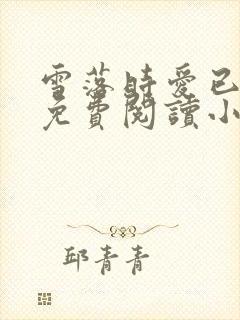 雪落時愛已
免費閱讀小
邱青青